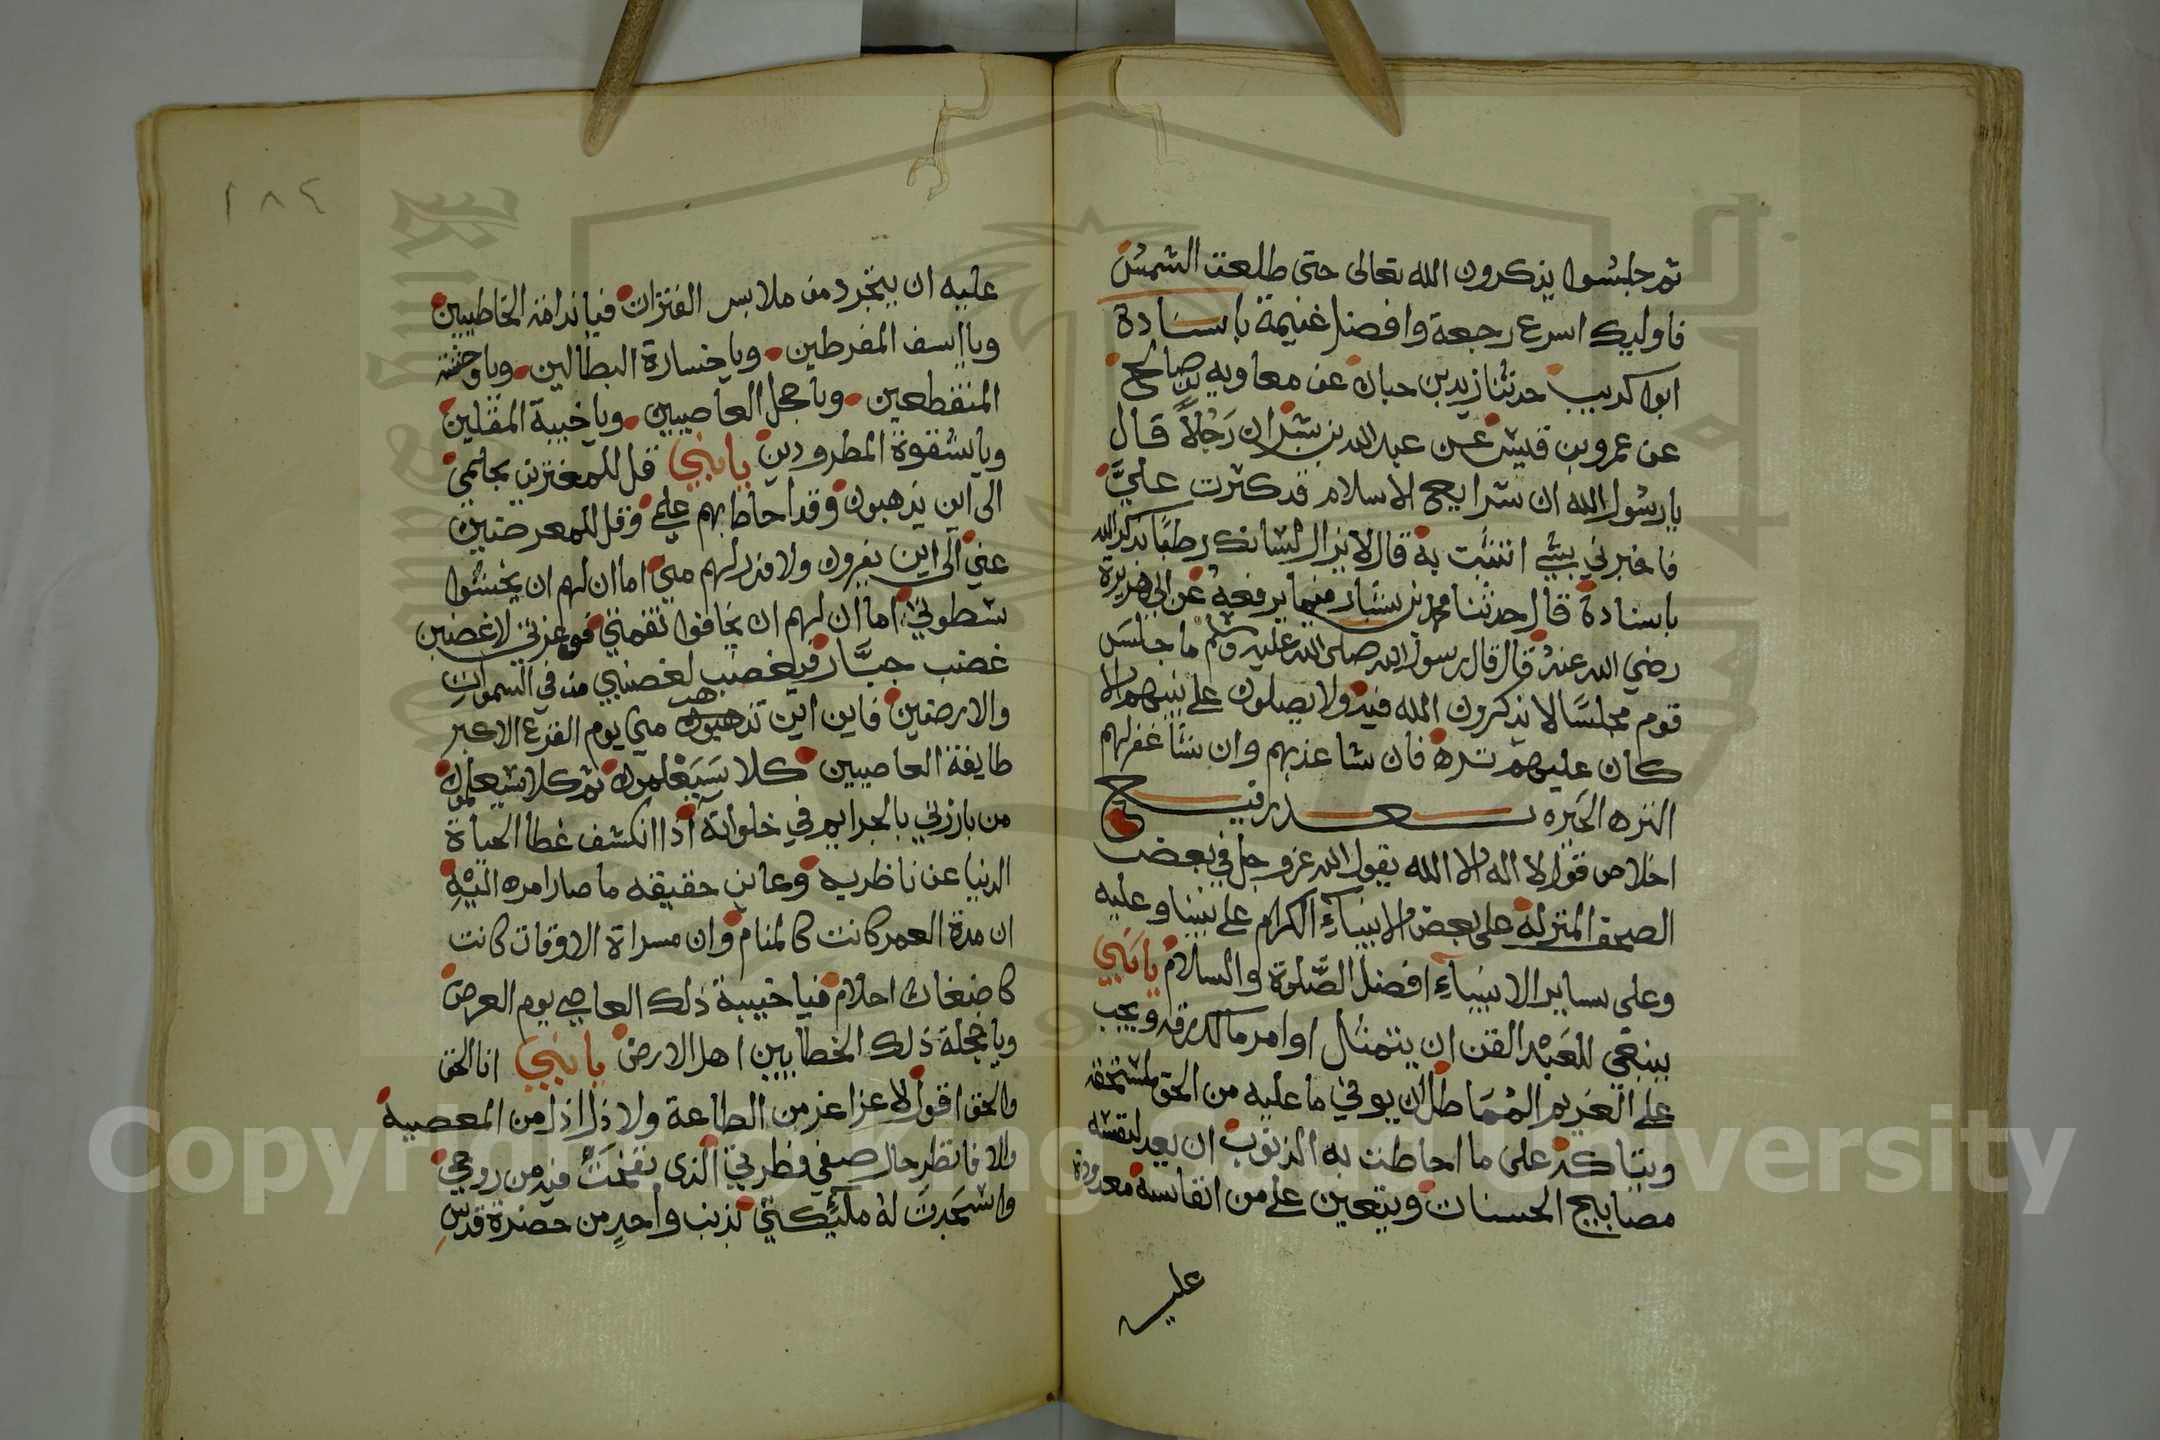 ثم جلسوا يذكرون الله تعالى حتى طلعت الشمس
فاوليك اسرع رجعة وافضل غنيمة باسناده
ابوا كريب حدثنا زيد بن حبان عن معاويه بن صالح
عن عمرو بن قيس عن عبد الله بن بشر ان رَجُلاً قال
يا رسول الله ان شرايع الاسلام قد كثرت عليَّ
فاخبرني بشي اتشبت به قال لا يزال لسانك رطبًا بذكر الله
باسناده قال حدثنا محمد بن بشار فيما يرفعهُ عن ابي هريرة
رضي الله عنهُ قال قال رسول الله صلى الله عليه وسلم ما جلسَ
قوم مجلسًا لا يذكرون الله فيه ولا يصلون على نبيهم الا
كان عليهم تره فان شا عذبهم وان شا غفر لهم
التره الحيره
اخلاص قول لا اله الا الله يقول الله عز وجل في بعض
الصحف المنزلة على بعض الانبياءِ الكرام على نبينا وعليه
وعلى ساير الانبياءِ افضل الصَّلوة والسلام يا بَني
ينبغي للعَبْد القن ان يتمثل اوامر مالك رقه ويجب
على الغريم المُمَاطل ان يوفي ما عليه من الحق لمستحقه
ويتاكد على من احاطت به الذنوب ان يعد لنفسه
مصابيح الحسنات ويتعين على من انفاسهُ معدودة
عليه
١٨٤
عليه ان يتجرد من ملابس الفترات فيا ندامة الخاطيين
ويا اسف المفرطين ويا خسارة البطالين ويا وحشة
المنقطعين ويا خجل العاصيين ويا خيبة المقلين
ويا شقوة المطرودين يا بني قل للمغترين بحلمي
الى اين يذهبون وقد احاط بهم علمي وقل للمعرضين
عني الى اين يفرون ولا مفر لهم مني اما ان لهم ان يخشوا
سطوتي اما ان لهم ان يخافوا نقمتي فوعزتي لاغضبن
غضب جبَّار فيغضب لغضبي من في السمواتِ
والارضين فاين اين تذهبون مني يوم الفزع الاكبر
طايفة العاصيين كلا سَيَعْلمون ثم كلا سيعلمون
من بارزني بالجرايم في خلواته اذا انكشف غطا الحياة
الدنيا عن ناظريه وعاين حقيقه ما صار امره اليْهِ
ان مدة العمر كانت كالمنام وان مسراة الاوقات كانت
كاضغاث احلام فيا خيبة ذلك العاصي يوم العرض
ويا خجلة ذلك الخطا بين اهل الارض يا بني انا الحق
والحق اقول لا عز اعز من الطاعة ولا ذل اذل من المعصية
والا فانظر حال صفي فطرتي الذى نفختُ فيه من روحي
واسجدت لهُ ملئكتي بذنب واحدٍ من حضرة قدسِ